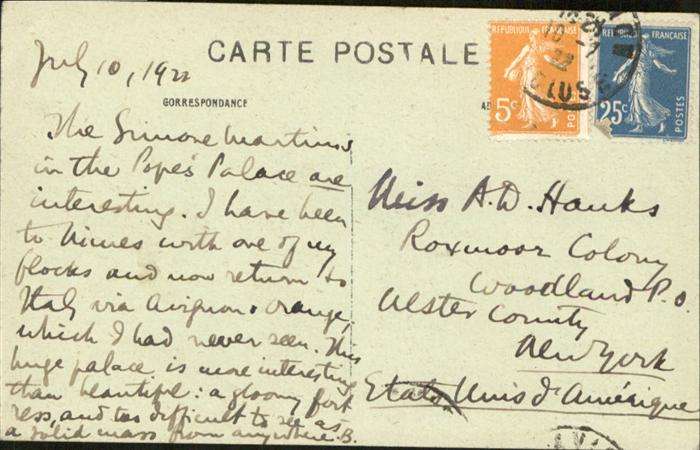 July 10, 1922
CARTE POSTALE
CORRESPONDANCE
The Simone Martinis
in the Pope's Palace are
interesting. I have been
to Nimes with one of my
flocks and now return to
Italy via Avignon & Orange,
which I had never seen. This
huge palace is more interesting
than beautiful: a gloomy fort
ress, and too difficult to see as
a solid mass from anywhere. B.
REPUBLIQUE FRANÇAISE
5c
POSTES
REPUBLIQUE FRANÇAISE
25c
POSTES
Miss A.D. Hanks
Roxmoor Colony
Woodland P.O
Ulster County
New York
Etats Unis d'Amérique